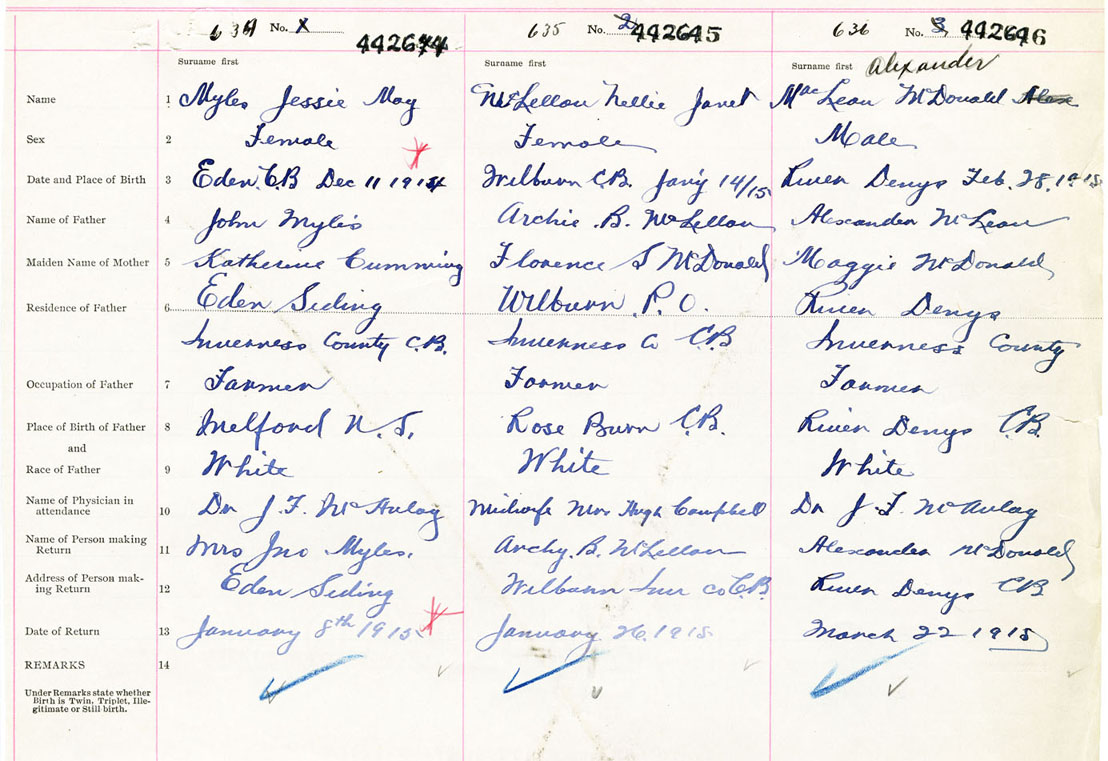 634 No. 1 442644 635 No. 2 442645 636 No. 3 442646
Surname first Surname first Surname first Alexander
Name 1 Myles Jessie May McLellan Nellie Janet MacLean McDonald Alex
Sex 2 Female Female Male
Date and Place of Birth 3 Eden C.B Dec 11 1914 Wilburn C.B. Jan'y 14/15 River Denys Feb. 28, 1915
Name of Father 4 John Myles Archie B. McLellan Alexander McLean
Maiden Name of Mother 5 Katherine Cumming Florence S McDonald Maggie McDonald
Residence of Father 6 Eden Siding Wilburn P.O. River Denys
Inverness County C.B. Inverness Co C.B River Denys Inverness County
Occupation of Father 7 Farmer Farmer Farmer
Place of Birth of Father 8 Melford N.S. Rose Burn C.B. River Denys C.B.
and
Race of Father 9 White White White
Name of Physician in
attendance 10 Dr J.F. McAulay Midwife Mrs Hugh Campbell Dr J.F. McAulay
Name of Person making
Return 11 Mrs Jno Myles. Archy. B. McLellan Alexander McDonald
Address of Person mak-
ing Return 12 Eden Siding Wilburn Inv co C.B. River Denys CB
Date of Return 13 January 8th 1915 January 26 1915 March 22 1915
REMARKS 14
Under Remarks state whether
Birth is Twin, Triplet, Ille-
gitimate or Still birth.